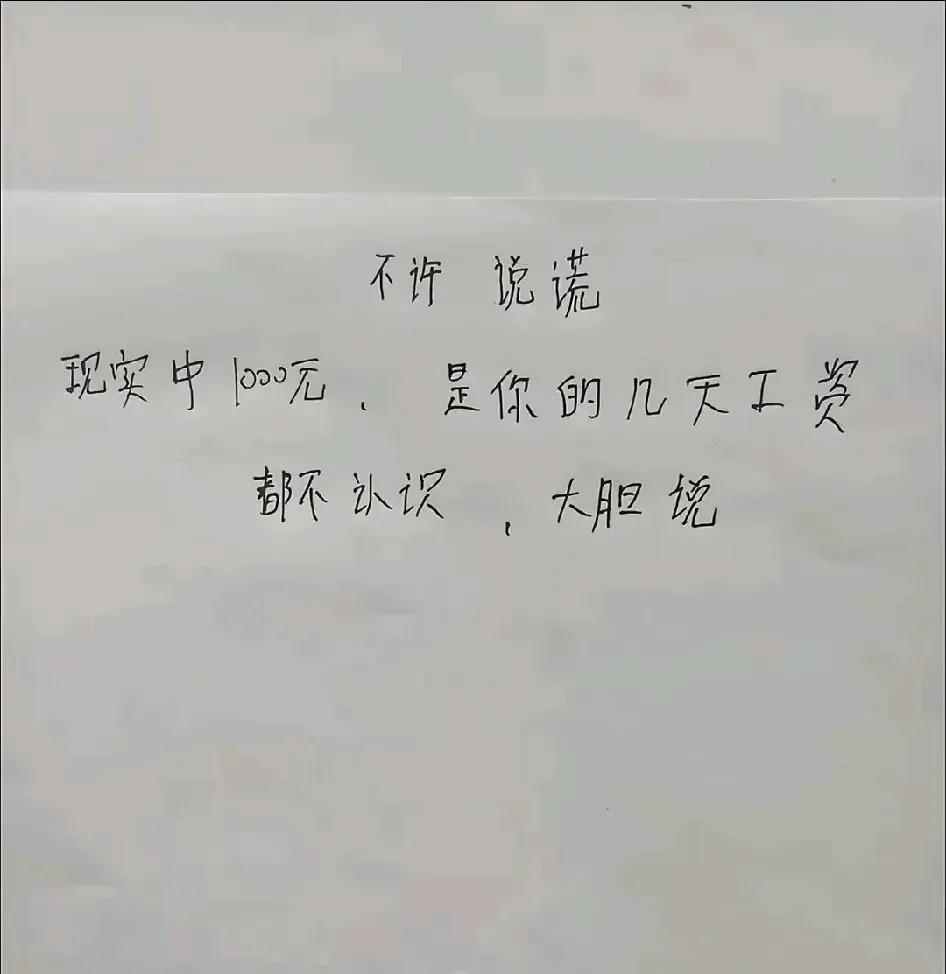 不许说谎
现实中1000元,是你的几天工资
都不认识,大胆说